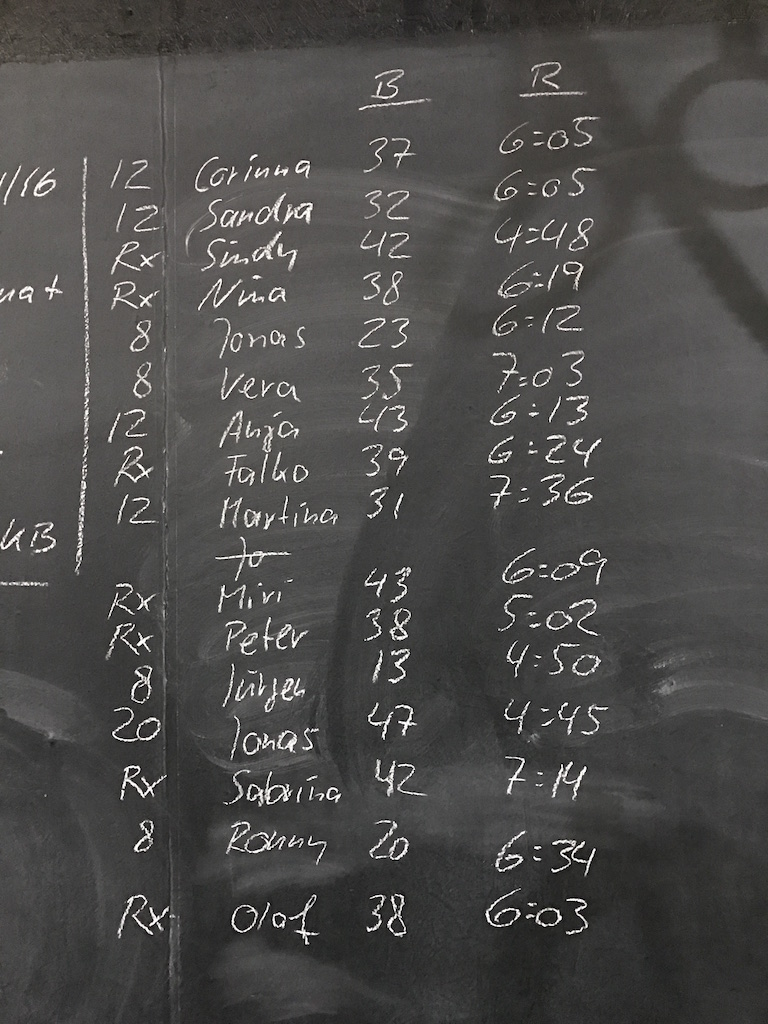 B R
1/16 12 Corinna 37 6:05
12 Sandra 32 6:05
Rx Sindy 42 4:48
Rx Nina 38 6:19
8 Jonas 23 6:12
8 Vera 35 7:03
12 Anja 43 6:13
Rx Falko 39 6:24
12 Martina 31 7:36
KB Jo
Rx Miri 43 6:09
Rx Peter 38 5:02
8 Jürgen 13 4:50
20 Jonas 47 4:45
Rx Sabrina 42 7:14
8 Ronny 20 6:34
Rx Olaf 38 6:03